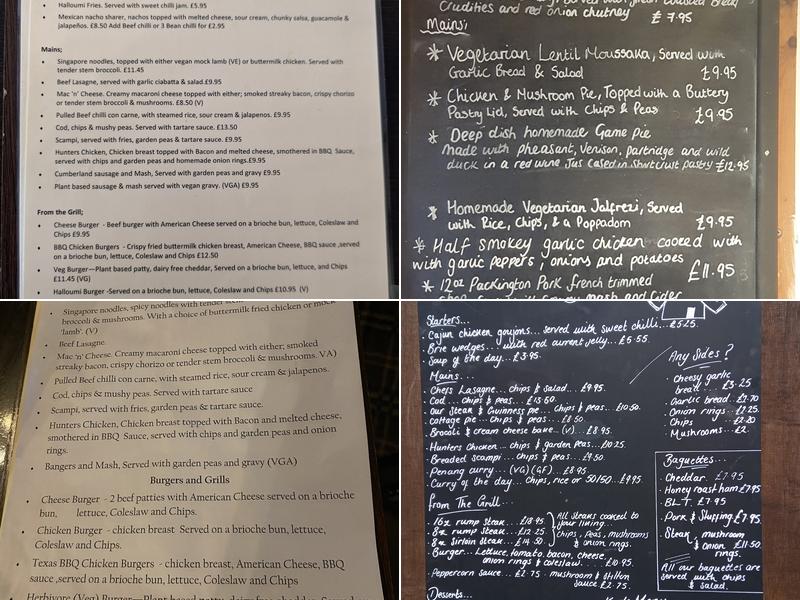 Halloumi Fries. Served with sweet chilli jam. £5.95
Mexican nacho sharer, nachos topped with melted cheese, sour cream, chunky salsa, guacamole &
jalapeños. £8.50 Add Beef chilli or 3 Bean chilli for £2.95
Mains;
Singapore noodles, topped with either vegan mock lamb (VE) or buttermilk chicken. Served with
tender stem broccoli. £11.45
Beef Lasagne, served with garlic ciabatta & salad.£9.95
Mac 'n' Cheese. Creamy macaroni cheese topped with either; smoked streaky bacon, crispy chorizo
or tender stem broccoli & mushrooms. £8.50 (V)
Pulled Beef chilli con carne, with steamed rice, sour cream & jalapenos. £9.95
Cod, chips & mushy peas. Served with tartare sauce. £13.50
Scampi, served with fries, garden peas & tartare sauce. £9.95
Hunters Chicken, Chicken breast topped with Bacon and melted cheese, smothered in BBQ Sauce,
served with chips and garden peas and homemade onion rings.£9.95
Cumberland sausage and Mash, Served with garden peas and gravy £9.95
Plant based sausage & mash served with vegan gravy. (VGA) £9.95
From the Grill;
Cheese Burger - Beef burger with American Cheese served on a brioche bun, lettuce, Coleslaw and
Chips £9.95
BBQ Chicken Burgers - Crispy fried buttermilk chicken breast, American Cheese, BBQ sauce ,served
on a brioche bun, lettuce, Coleslaw and Chips £12.50
Veg Burger—Plant based patty, dairy free cheddar, Served on a brioche bun, lettuce, and Chips
£11.45 (VG)
Halloumi Burger -Served on a brioche bun, lettuce, Coleslaw and Chips £10.95 (V)
Crudities and red onion chutney £7.95
Mains:
* Vegetarian Lentil Moussaka, Served with
Garlic Bread & Salad £9.95
* Chicken & Mushroom Pie, Topped with a Buttery
Pastry Lid, Served with Chips & Peas £9.95
* Deep dish homemade Game pie
made with pheasant, venison, partridge and wild
duck in a red wine Jus cased in Shortcrust pastry £12.95
* Homemade Vegetarian Jalfrezi, Served
with Rice, Chips, & a Poppadom £9.95
* Half smokey garlic chicken cooked with
with garlic peppers, onions and potatoes
£11.95
* 12oz Packington Pork french trimmed
mash and Cider
Singapore noodles, spicy noodles with tender
broccoli & mushrooms. With a choice of buttermilk fried chicken or mock
'lamb'. (V)
Beef Lasagne
Mac 'n' Cheese. Creamy macaroni cheese topped with either; smoked
streaky bacon, crispy chorizo or tender stem broccoli & mushrooms. VA)
Pulled Beef chilli con carne, with steamed rice, sour cream & jalapenos.
Cod, chips & mushy peas. Served with tartare sauce
Scampi, served with fries, garden peas & tartare sauce.
Hunters Chicken, Chicken breast topped with Bacon and melted cheese,
smothered in BBQ Sauce, served with chips and garden peas and onion
rings.
Bangers and Mash, Served with garden peas and gravy (VGA)
Burgers and Grills
Cheese Burger - 2 beef patties with American Cheese served on a brioche
bun, lettuce, Coleslaw and Chips.
Chicken Burger - chicken breast Served on a brioche bun, lettuce,
Coleslaw and Chips.
Texas BBQ Chicken Burgers - chicken breast, American Cheese, BBQ
sauce ,served on a brioche bun, lettuce, Coleslaw and Chips
Herbivore (Veg) Burger—Plant based patty, dairy free cheddar, Served on a
Starters...
Cajun chicken goujons... served with sweet chilli... £5.25.
Brie wedges... with red current jelly... £5.55.
Soup of the day... £3.95.
Mains...
Chefs Lasagne... chips & salad... £9.95.
Cod... chips & peas... £13.60.
Our Steak & Guinness pie... chips & peas... £10.50.
Cottage pie... Chips & peas... £8.50
Brocoli & cream cheese bake... (V)... £8.95.
Hunters Chicken... chips & garden peas... £10.25.
Breaded Scampi... chips & peas... £9.50
Penang curry... (VG)(GF)... £8.95.
Curry of the day.. chips, rice or 50/50... £9.95
From The Grill...
16oz rump steak... £18.95
8oz rump steak... £12.25
8oz Sirloin Steak... £14.50
All steaks cooked to
your liking...
Chips, peas, mushrooms
& onion rings.
Burger... Lettuce, tomato, bacon, cheese
onion rings & coleslaw... £10.95.
Peppercorn sauce... £2.75 mushroom & stilton
sauce £2.75.
Desserts...
Any Sides?
Cheesy garlic
bread... £3.25
Garlic bread.. £2.70
Onion rings... £2.25
Chips £2.20
Mushrooms... £2.
Baguettes...
Cheddar. £7.95
Honey roast ham £7.95
BLT. £7.95
Pork & Stuffing £7.95
Steak, mushroom
& onion £11.50
rings.
All our baguettes are
served with chips
& salad.